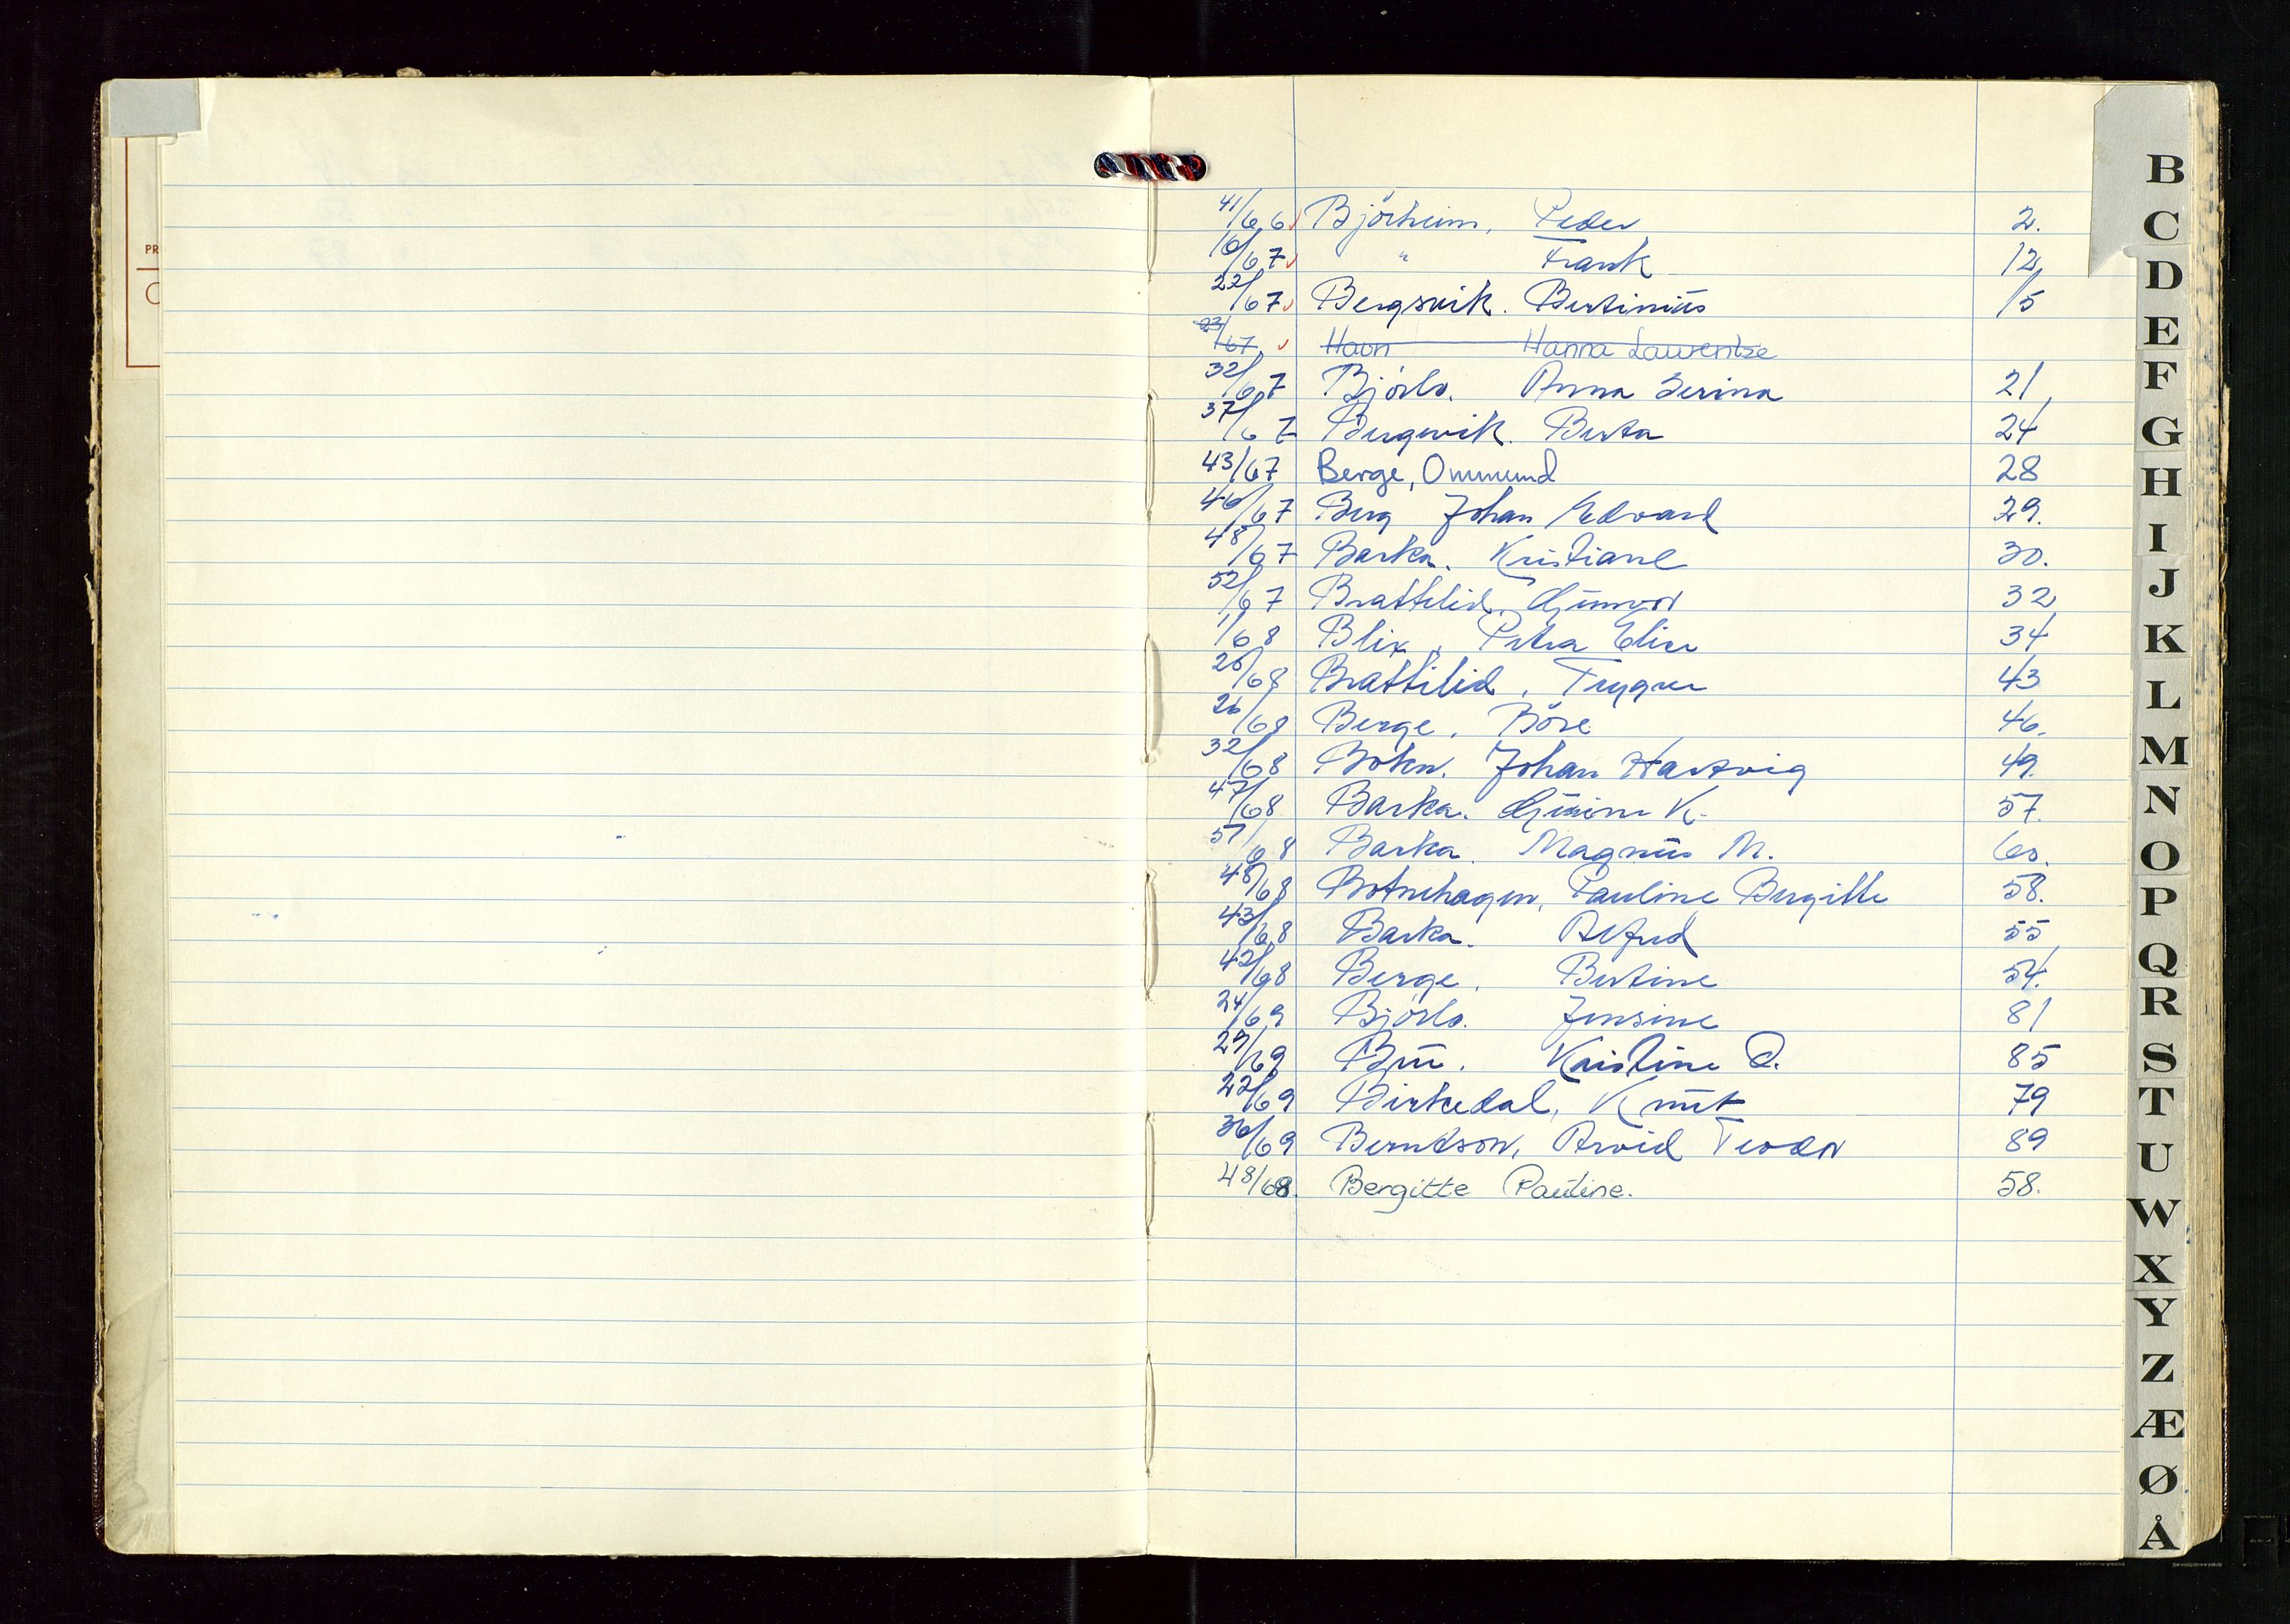 PR
41/66 Björheim, Peder 2.
16/67 " Frank 12,
22/67 Bergsvik. Bertinius 15
23/67 Havn Hanna Laurentze
32/67 Bjórlo. Anna Serina 21
37/67 Bergevik. Berta 24
43/67 Berge, Ommund 28
46/67 Berg Johan Edvard 29.
48/67 Barka. Kristiane 30.
52/67 Brattelid, Gunvor 32
1/68 Blix, Petra Elise 34
26/68 Brattelid, Trygve 43
26/68 Berge, Böre 46.
32/68 Bokn. Johan Hartvig 49.
47/68 Barka. K. 57.
57/68 Barka. Magnus M. 60.
48/68 Botnehagen, Pauline Bergitte 58.
43/68 Barka. Alfred 55
42/68 Berge, Bertine 54.
24/69 Bjórlo. Jensine 81
29/69 Bru. Kristine O. 85
22/69 Birkedal, Knut 79
36/69 Berntson, Arvid Teodor 89
48/68. Bergitte Pauline. 58.
B
C
D
E
F
G
H
I
J
K
L
M
N
O
P
Q
R
S
T
U
W
X
Y
Z
Æ
Ø
Å